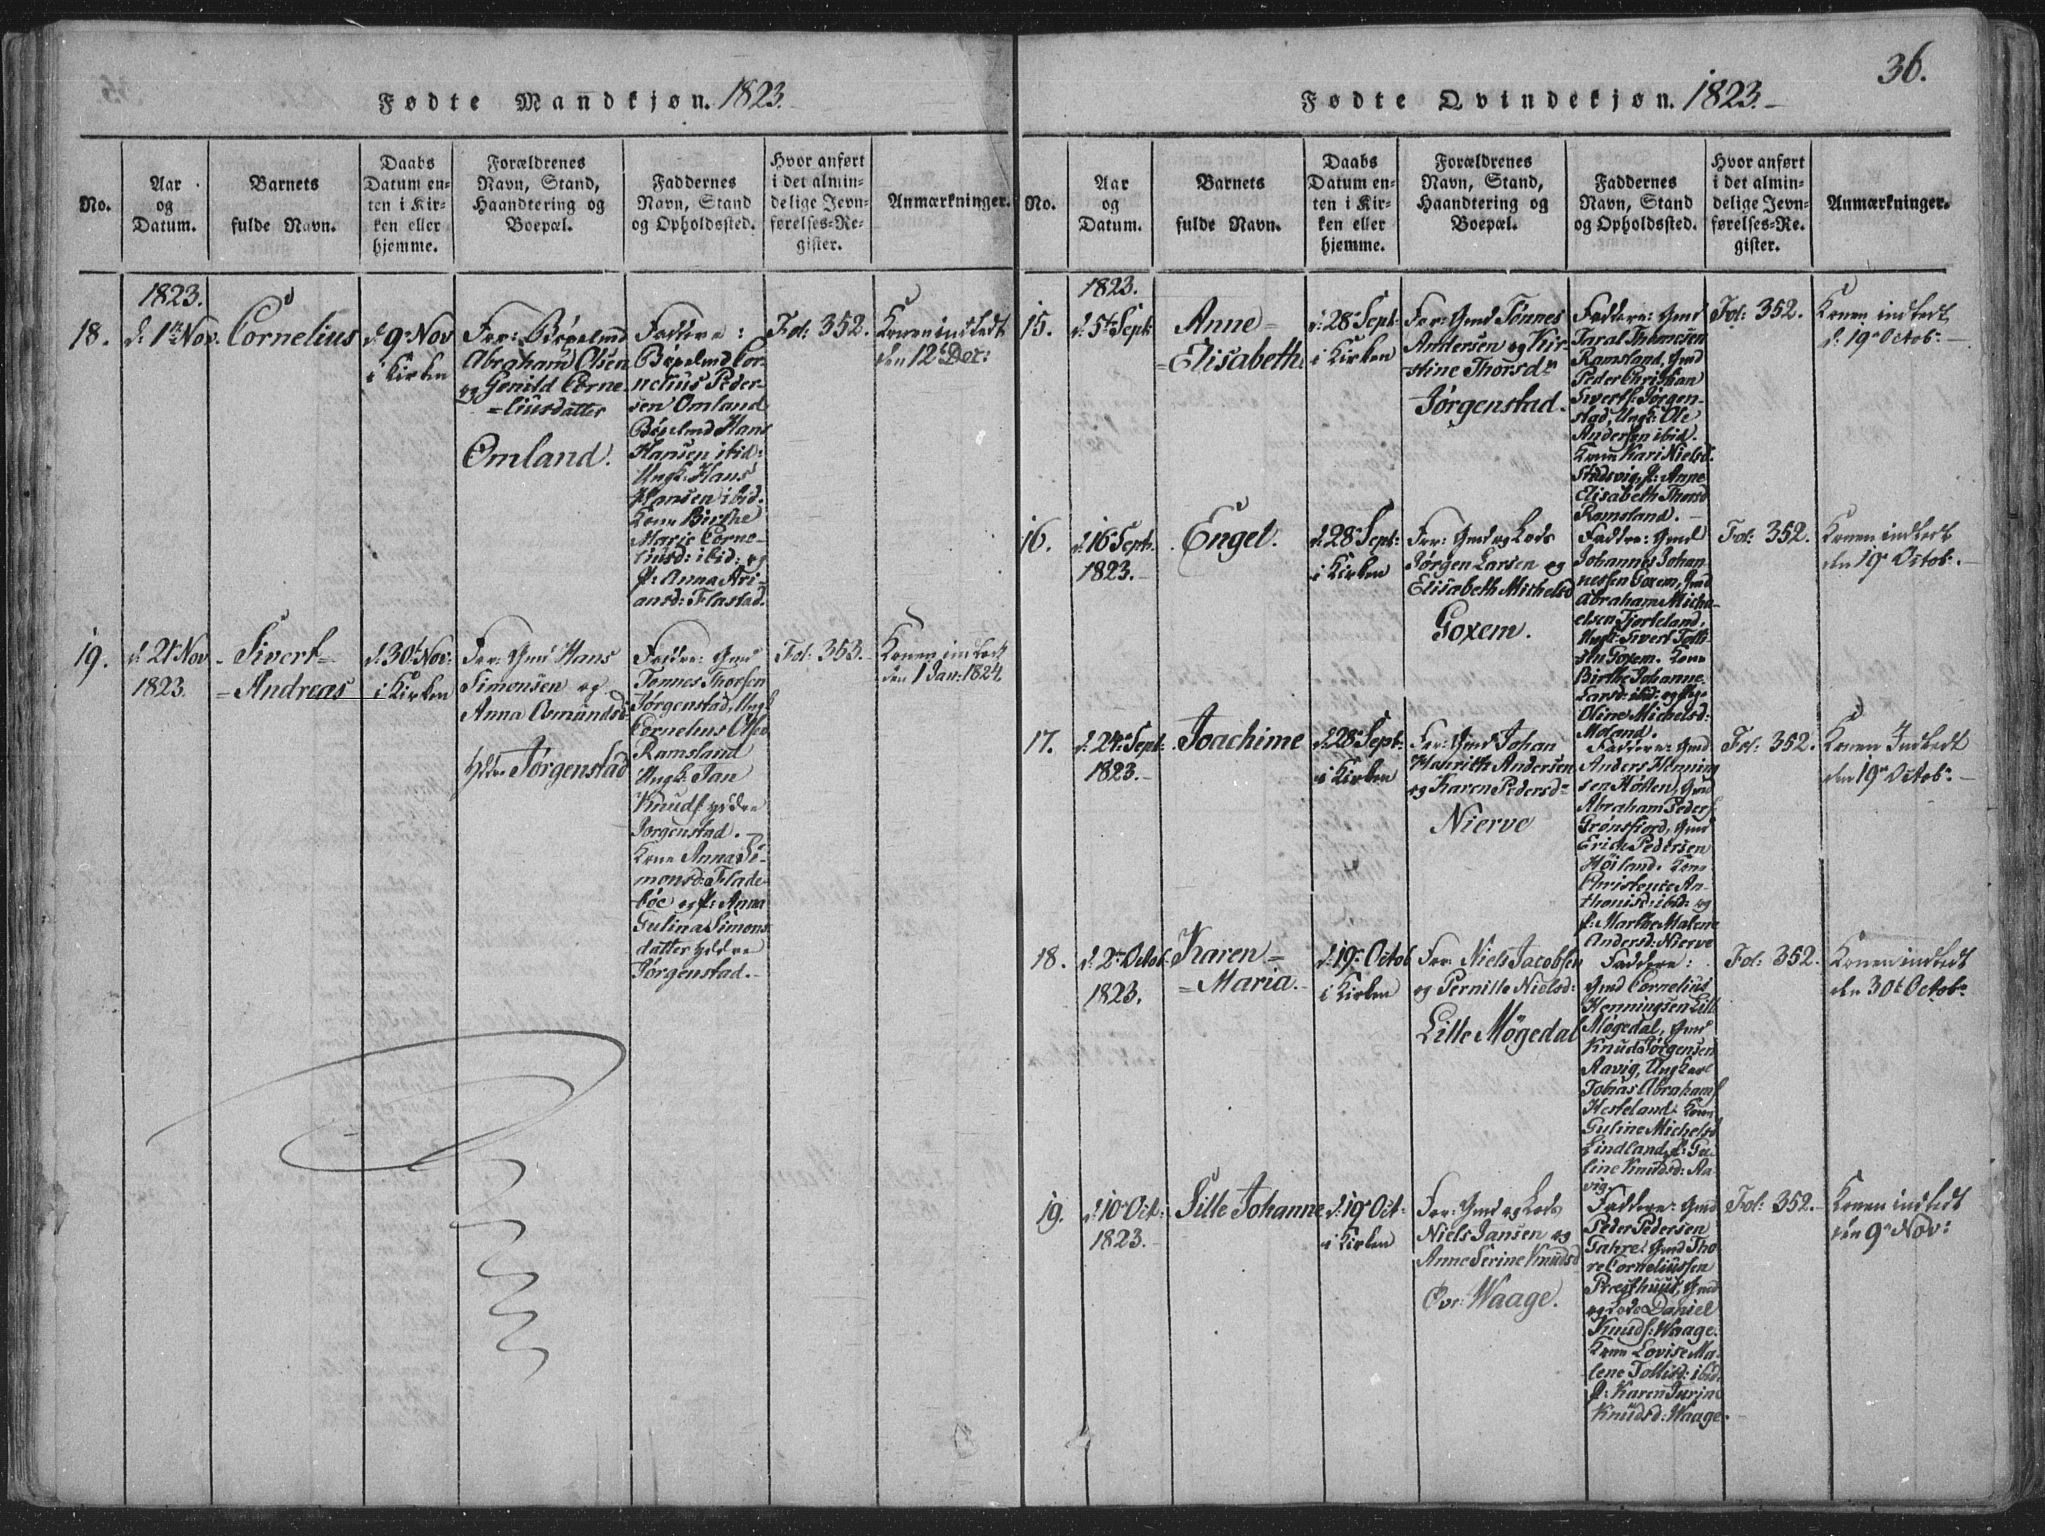 36.
Fødte Mandkjøn. 1823.
No.
Aar og Datum.
Barnets fulde Navn.
Daabs Datum enten i Kirken eller hjemme.
Forældrenes Navn, Stand, Haandtering og Boepæl.
Faddernes Navn, Stand og Opholdssted.
Hvor anført i det almindelige Jevnførelses-Register.
Anmærkninger.
1823.
18.
d: 1ste Nov.
Cornelius
d: 9de Nov
i Kirken
For:
Abraham Olsen
og Gunild Corne-
=liusdatter
Omland.
Faddere:
Cor-
nelius Peder-
sen Omland
Hans
Hansen ibid:
Ungk: Hans
Hansen ibid.
Kone Birthe
Marie Corne-
liusd: ibid: og
P: Anna Ari-
ansd: Flastad.
Fol: 352.
Konen indledt
den 12te Dec:
19.
d: 21 Nov
1823.
Sivert=
=Andreas
d: 30te Nov:
i Kirken
For: Gmd Hans
Simonsen og
Anna Asmundsd:
Jørgenstad
Faddere: Gmd
Tønnes Thorsen
Jørgenstad, Ungk
Cornelius Olsen
Ramsland
Ungk. Jan
Knuds:
Jørgenstad.
Kone Anna Si-
monsd: Flade-
böe og P: Anna
Gulina Simons
datter
Jørgenstad.
Fol: 353.
Konen indledt
den 1 Jan: 1824.
Fødte Qvindekjøn. 1823.
No.
Aar og Datum.
Barnets fulde Navn.
Daabs Datum enten i Kirken eller hjemme.
Forældrenes Navn, Stand, Haandtering og Boepæl.
Faddernes Navn, Stand og Opholdssted.
Hvor anført i det almindelige Jevnførelses-Register.
Anmærkninger.
1823.
15.
d: 5te Sept:
Anne=
=Elisabeth.
d: 28 Sept:
i Kirken
For: Gmd Tønnes
Andersen og Kir-
stine Thorsdr
Jørgenstad.
Faddere: Gmd
Taral Thomesen
Ramsland, Gmd
Peder Christian
Siverts: Jørgen-
stad, Ungk: Ole
Andersen ibid.
Kone Kari Nielsd:
Stadsvig, P: Anne
Elisabeth Thorsd
Ramsland.
Fol: 352.
Konen indledt
d: 19de Octob:
16.
d: 16 Sept:
1823.
Engel.
d: 28 Sept:
i Kirken
For: Gmd og Lods
Jørgen Larsen og
Elisabeth Michelsd
Goxem.
Faddre: Gmd
Johannes Johan-
nessen Goxem, Gmd
Abraham Micha-
elsen Fjorteland,
Ungk: Sivert Tolli-
sen Goxem. Kone
Birthe Johanne
Larsd: ibid: og
Oline Michelsd:
Moland.
Fol: 352.
Konen indledt
den 19de Octob:
17.
d: 24de Sept:
1823.
Joachime
d: 28 Sept:
i Kirken
For: Gmd Johan
Henrich Andersen
og Karen Pedersdr
Nierve
Faddere: Gmd
Anders Henning-
sen Høllen, Gmd
Abraham Peders:
Grønsfiord, Gmd
Erich Pedersen
Høiland. Kone
Christente An-
thonisd: ibid: og
P: Marthe Malene
Andersd: Nierve
Fol: 352.
Konen Indledt
den 19de Octob:
18.
d: 2de Octob:
1823.
Karen=
=Maria.
d: 19de Octob
i Kirken
For: Niels Jacobsen
og Pernille Nielsd:
Lille Møgedal
Faddere:
Gmd Cornelius
Henningsen Lill:
Møgedal, Gmd
Knud Jørgensen
Aavig, Ungkarl
Tobias Abrahams:
Hesteland. Kone
Guline Michelsd
Lindland, P: Gu-
line Knudsd: Aa-
vig.
Fol: 352.
Konen indledt
den 30te Octob:
19.
d: 10de Oct:
1823.
Sille Johanne
d: 19de Oct:
i Kirken
For: Gmd og Lods
Niels Jansen og
Anne Serine Knudsd
Øvr: Waage.
Faddere: Gmd
Peder Pedersen
Gahre: Gmd Tho-
re Corneliussen
Presthuus, Gmd
og Lods Daniel
Knuds: Waage.
Kone Lovise Ma-
lene Tollisd: ibid.
P: Karen Turine
Knudsd: Waage.
Fol: 352.
Konen indledt
den 9de Nov: